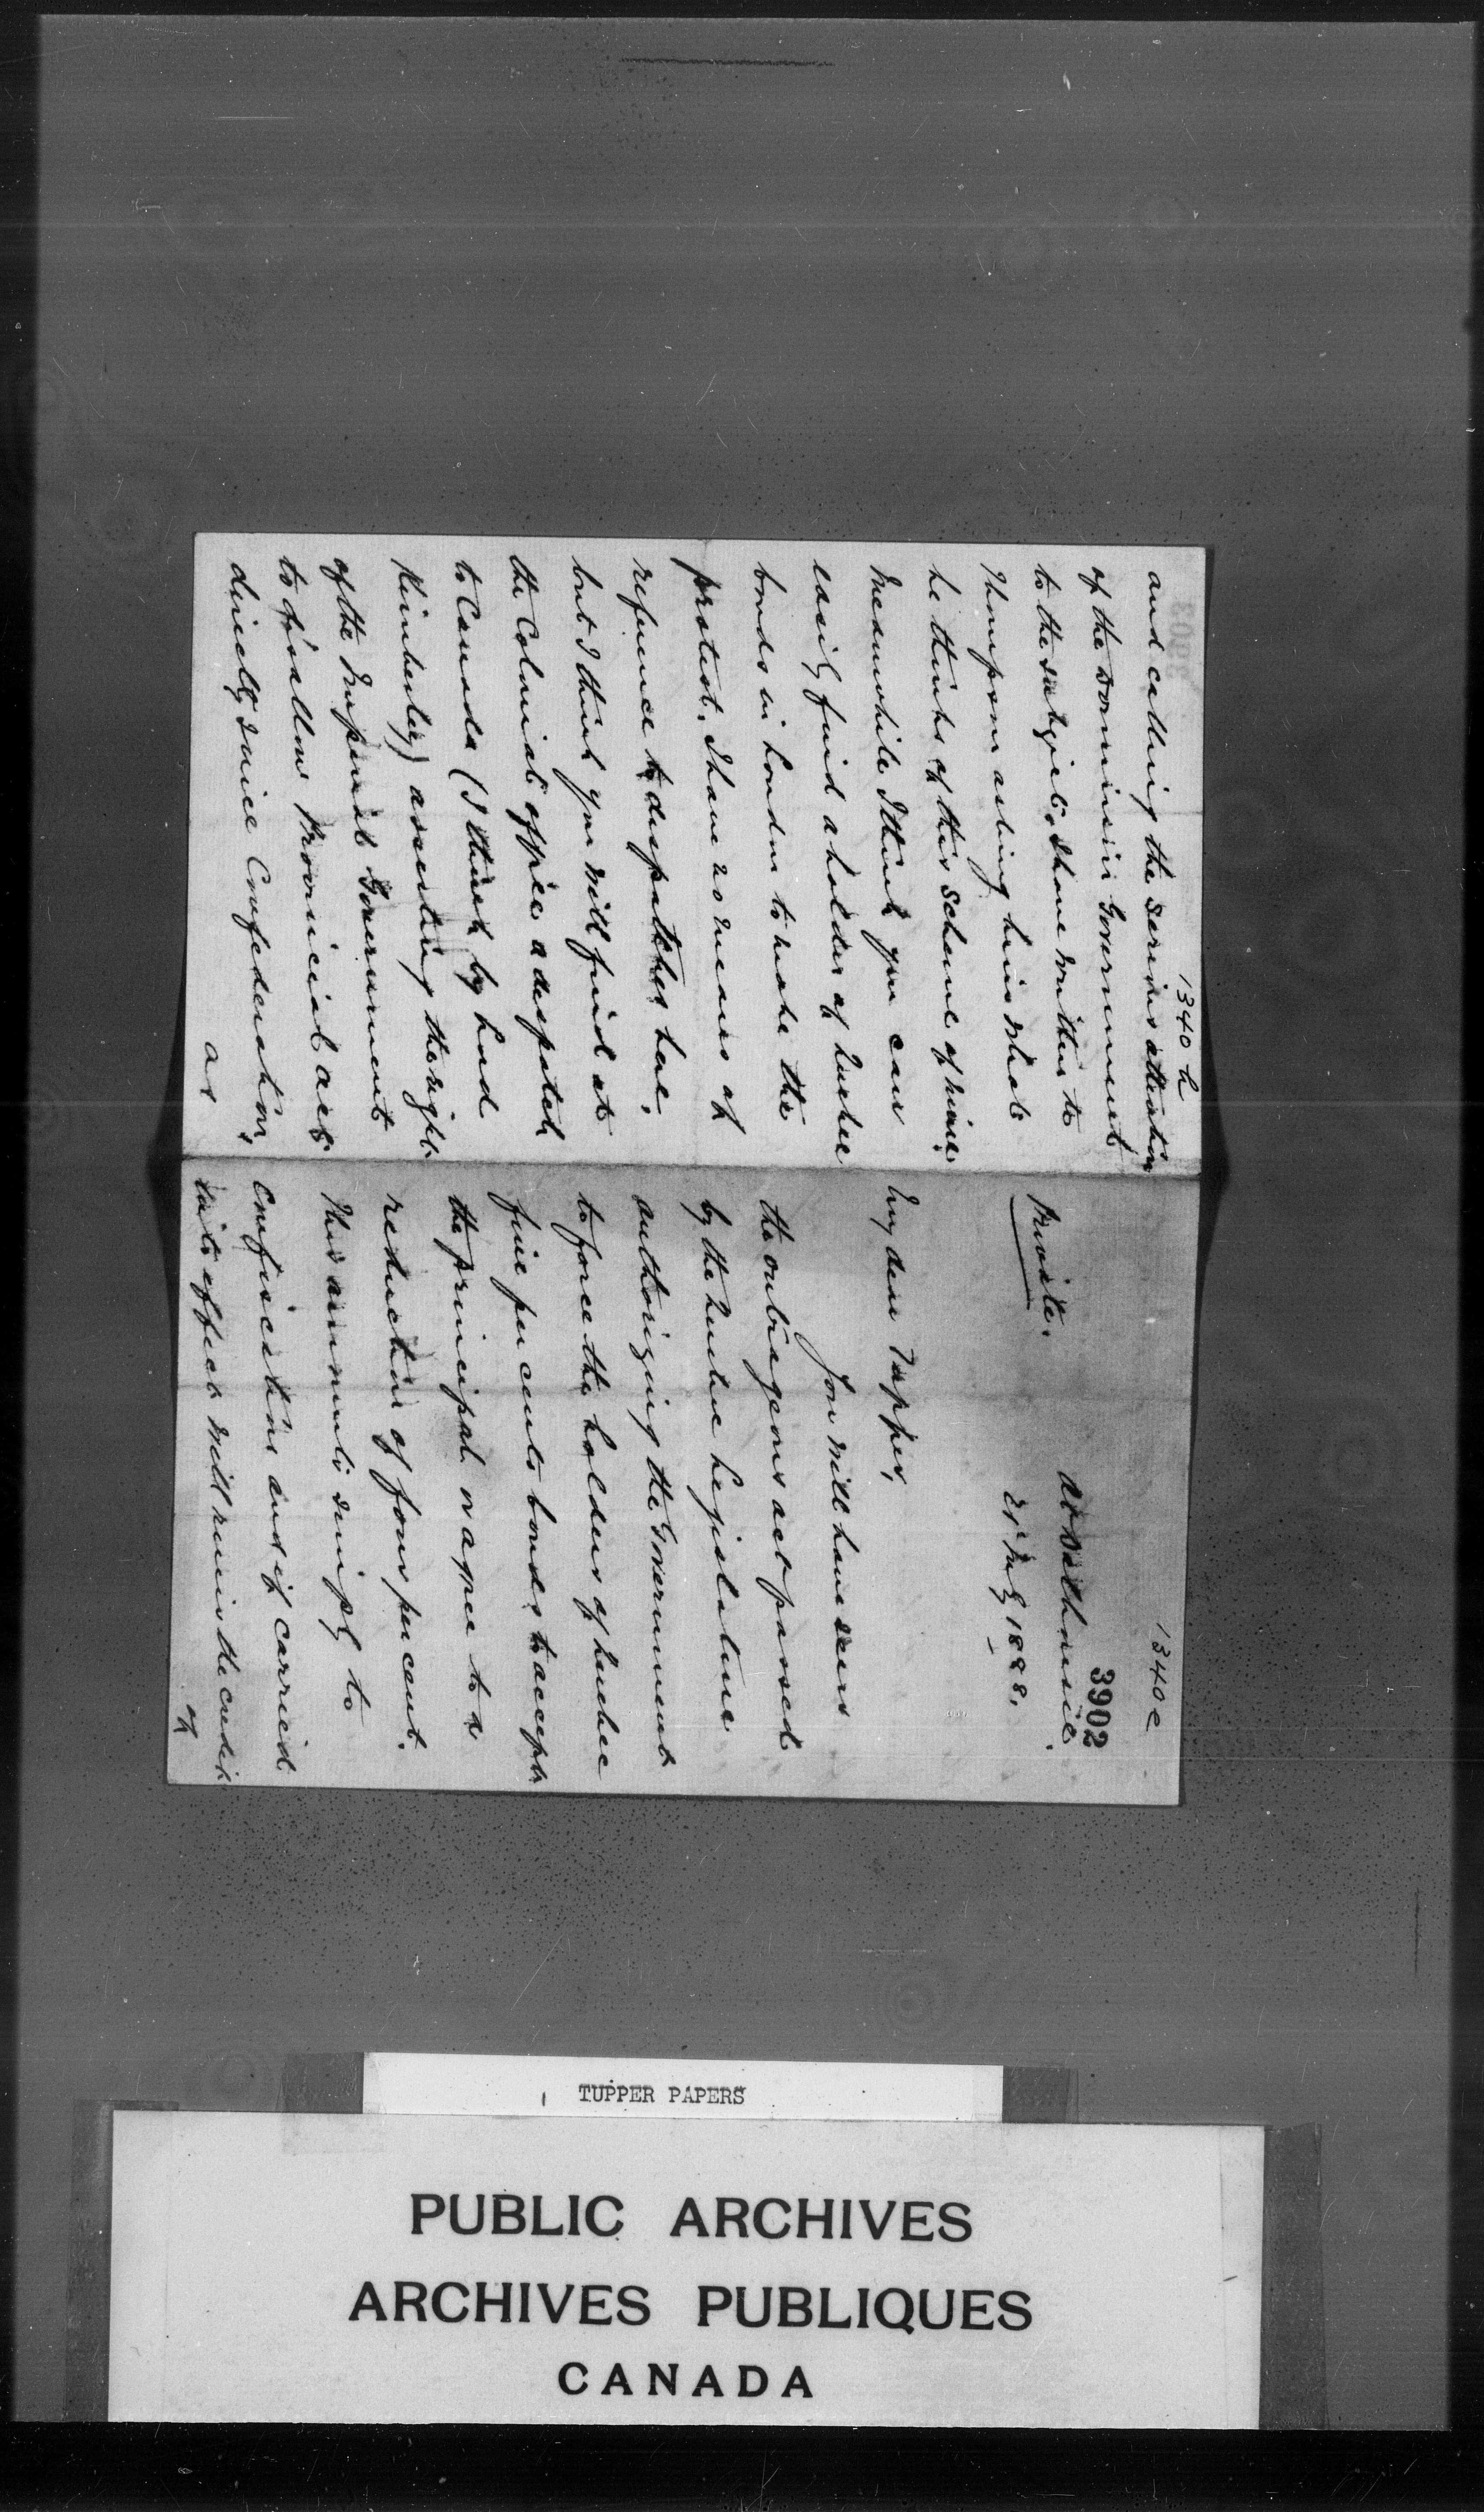 1340 h
and calling the serious attention
of the Dominion Government
to the subject. I have written to
Thompson asking him what
he thinks of this scheme of mine.
Meanwhile I think you can
easily find a holder of Quebec
bonds in London to make the
protest. I have no means of
reference to despatches here,
but I think you will find at
the Colonial office a despatch
to Canada (I think by Lord
Kimberley) asserting the right
of the Imperial Government
to disallow Provincial acts
directly since Confederation,
as
1340 e
3902
Dalhousie.
Private.
July 1888.
My dear Tupper,
You will have seen
the outrageous act passed
by the Quebec Legislature
authorizing the Government
to force the holders of Quebec
five per cents bonds to accept
the principal or agree to a
reduction of four per cent.
This amounts simply to
confiscation and if carried
into effect will ruin the credit
of
TUPPER PAPERS
PUBLIC ARCHIVES
ARCHIVES PUBLIQUES
CANADA